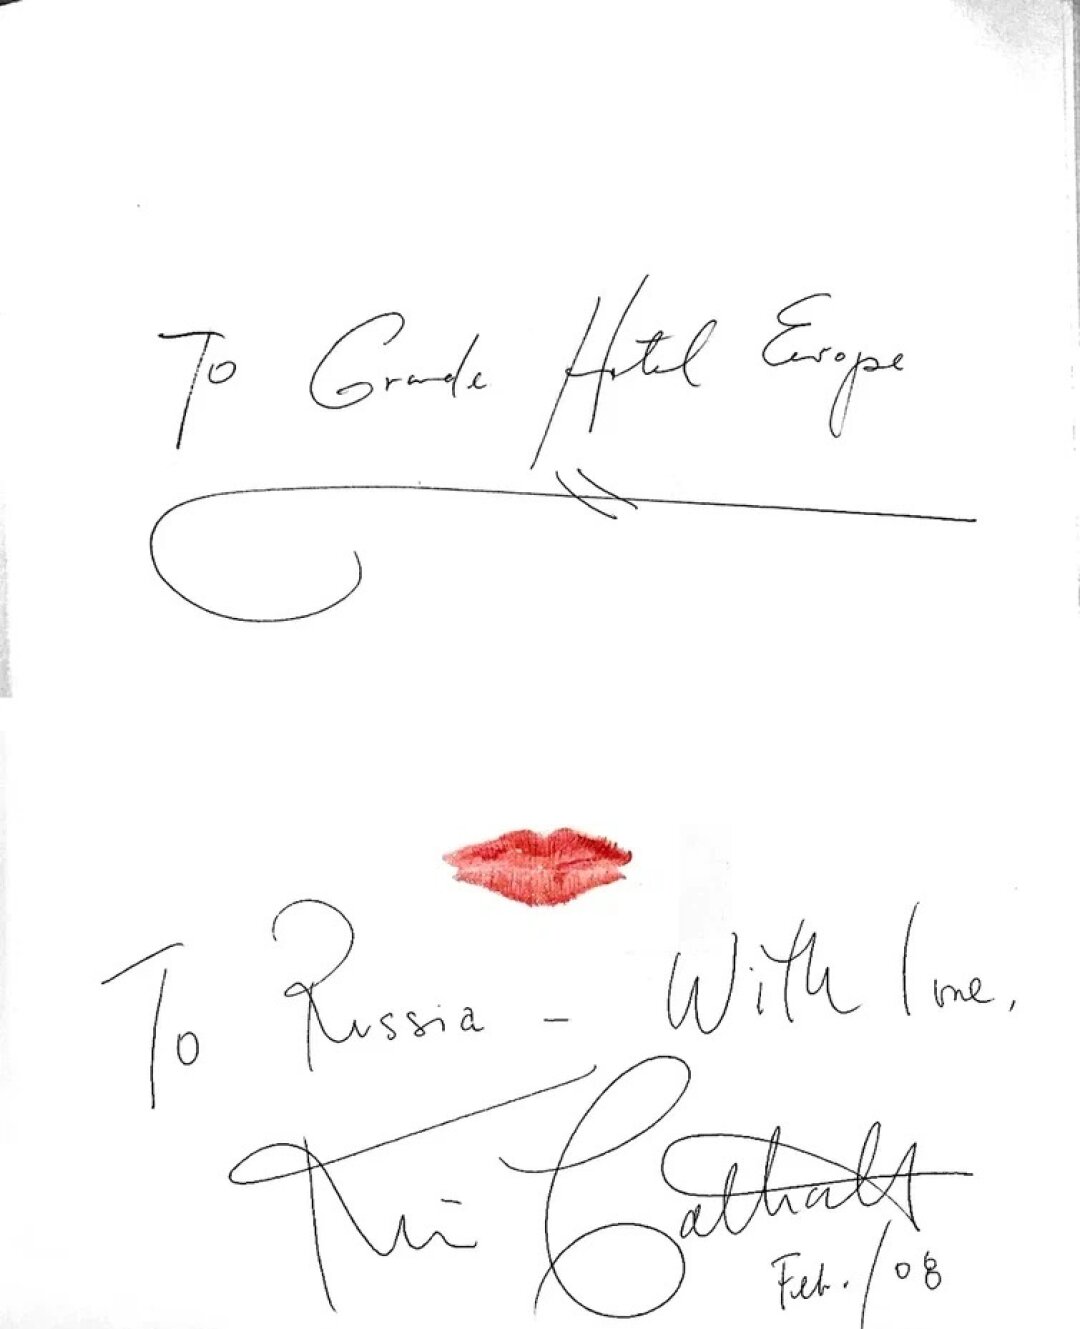 To Grande Hotel Europe
To Russia - With love,
Kim Cattrall
Feb. / 08